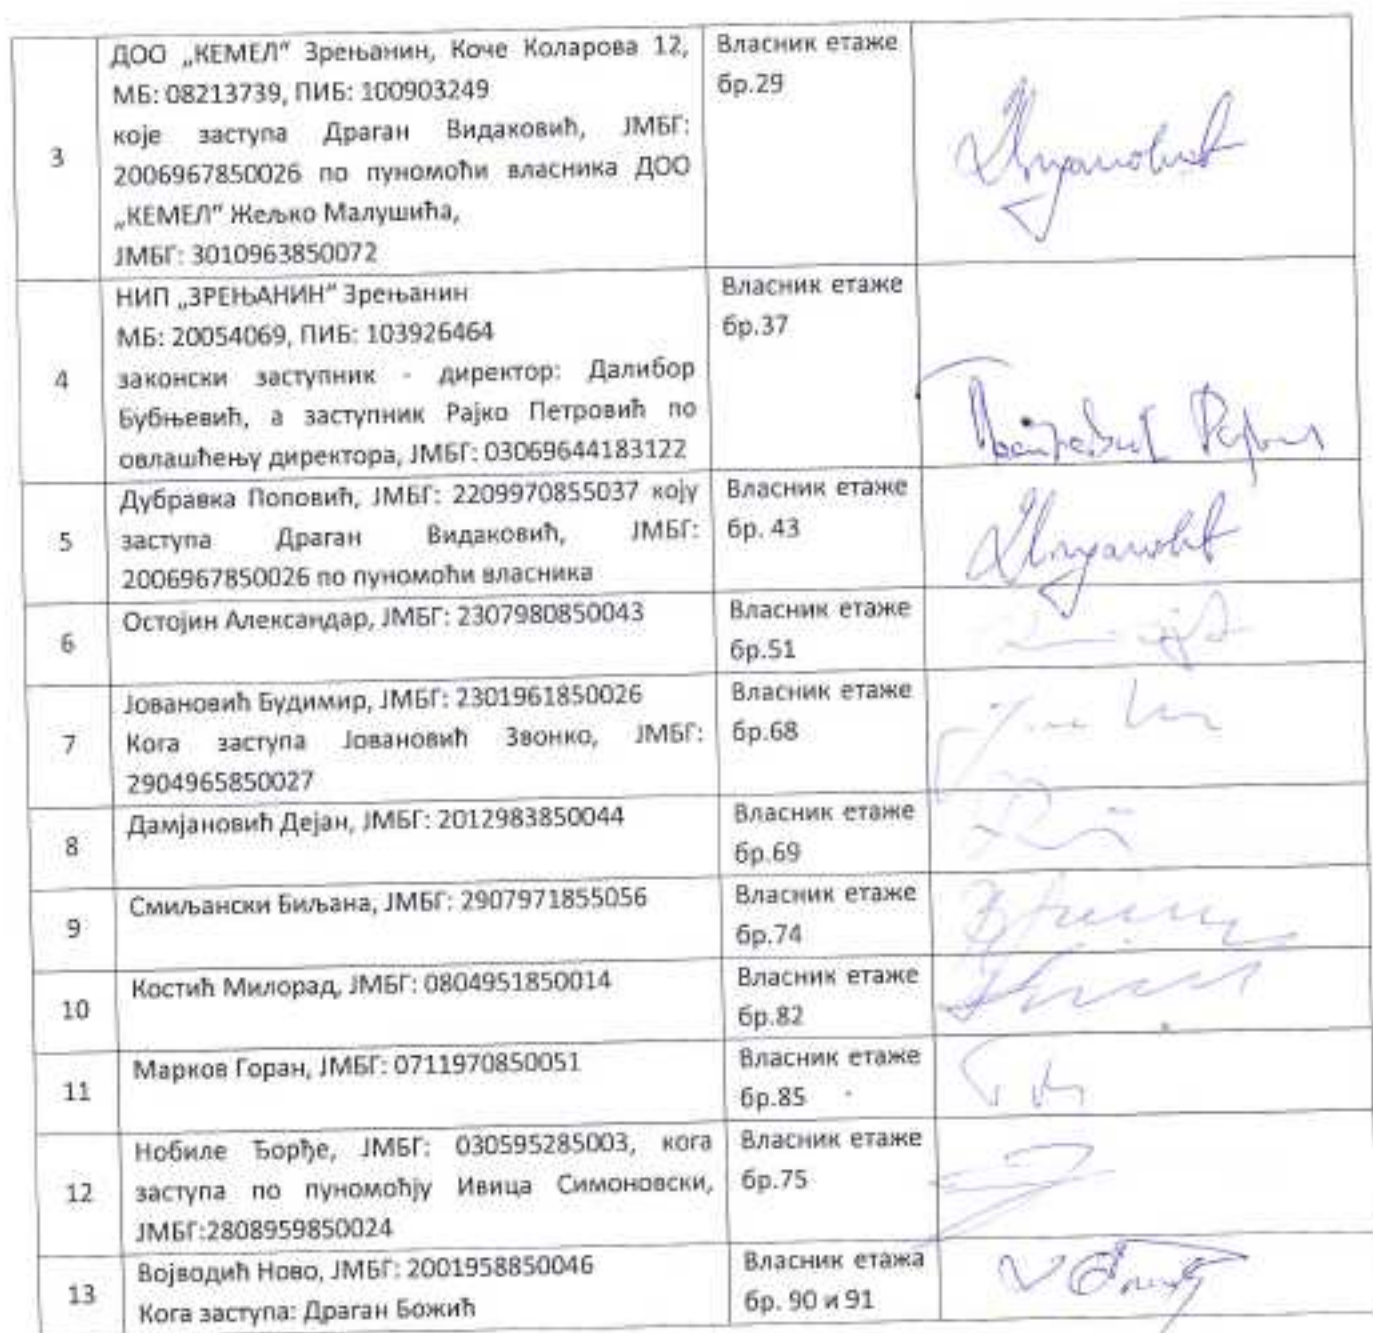 3
ДОО „КЕМЕЛ“ Зрењанин, Коче Коларова 12,
МБ: 08213739, ПИБ: 100903249
које заступа Драган Видаковић, ЈМБГ:
2006967850026 по пуномоћи власника ДОО
„КЕМЕЛ“ Жељко Малушића,
ЈМБГ: 3010963850072
Власник етаже
бр.29
4
НИП „ЗРЕЊАНИН“ Зрењанин
МБ: 20054069, ПИБ: 103926464
законски заступник - директор: Далибор
Бубњевић, а заступник Рајко Петровић по
овлашћењу директора, ЈМБГ: 03069644183122
Власник етаже
бр.37
5
Дубравка Поповић, ЈМБГ: 2209970855037 коју
заступа Драган Видаковић, ЈМБГ:
2006967850026 по пуномоћи власника
Власник етаже
бр. 43
6
Остојин Александар, ЈМБГ: 2307980850043
Власник етаже
бр.51
7
Јовановић Будимир, ЈМБГ: 2301961850026
Кога заступа Јовановић Звонко, ЈМБГ:
2904965850027
Власник етаже
бр.68
8
Дамјановић Дејан, ЈМБГ: 2012983850044
Власник етаже
бр.69
9
Смиљански Биљана, ЈМБГ: 2907971855056
Власник етаже
бр.74
10
Костић Милорад, ЈМБГ: 0804951850014
Власник етаже
бр.82
11
Марков Горан, ЈМБГ: 0711970850051
Власник етаже
бр.85
12
Нобиле Ђорђе, ЈМБГ: 030595285003, кога
заступа по пуномоћју Ивица Симоновски,
ЈМБГ:2808959850024
Власник етаже
бр.75
13
Војводић Ново, ЈМБГ: 2001958850046
Кога заступа: Драган Божић
Власник етажа
бр. 90 и 91